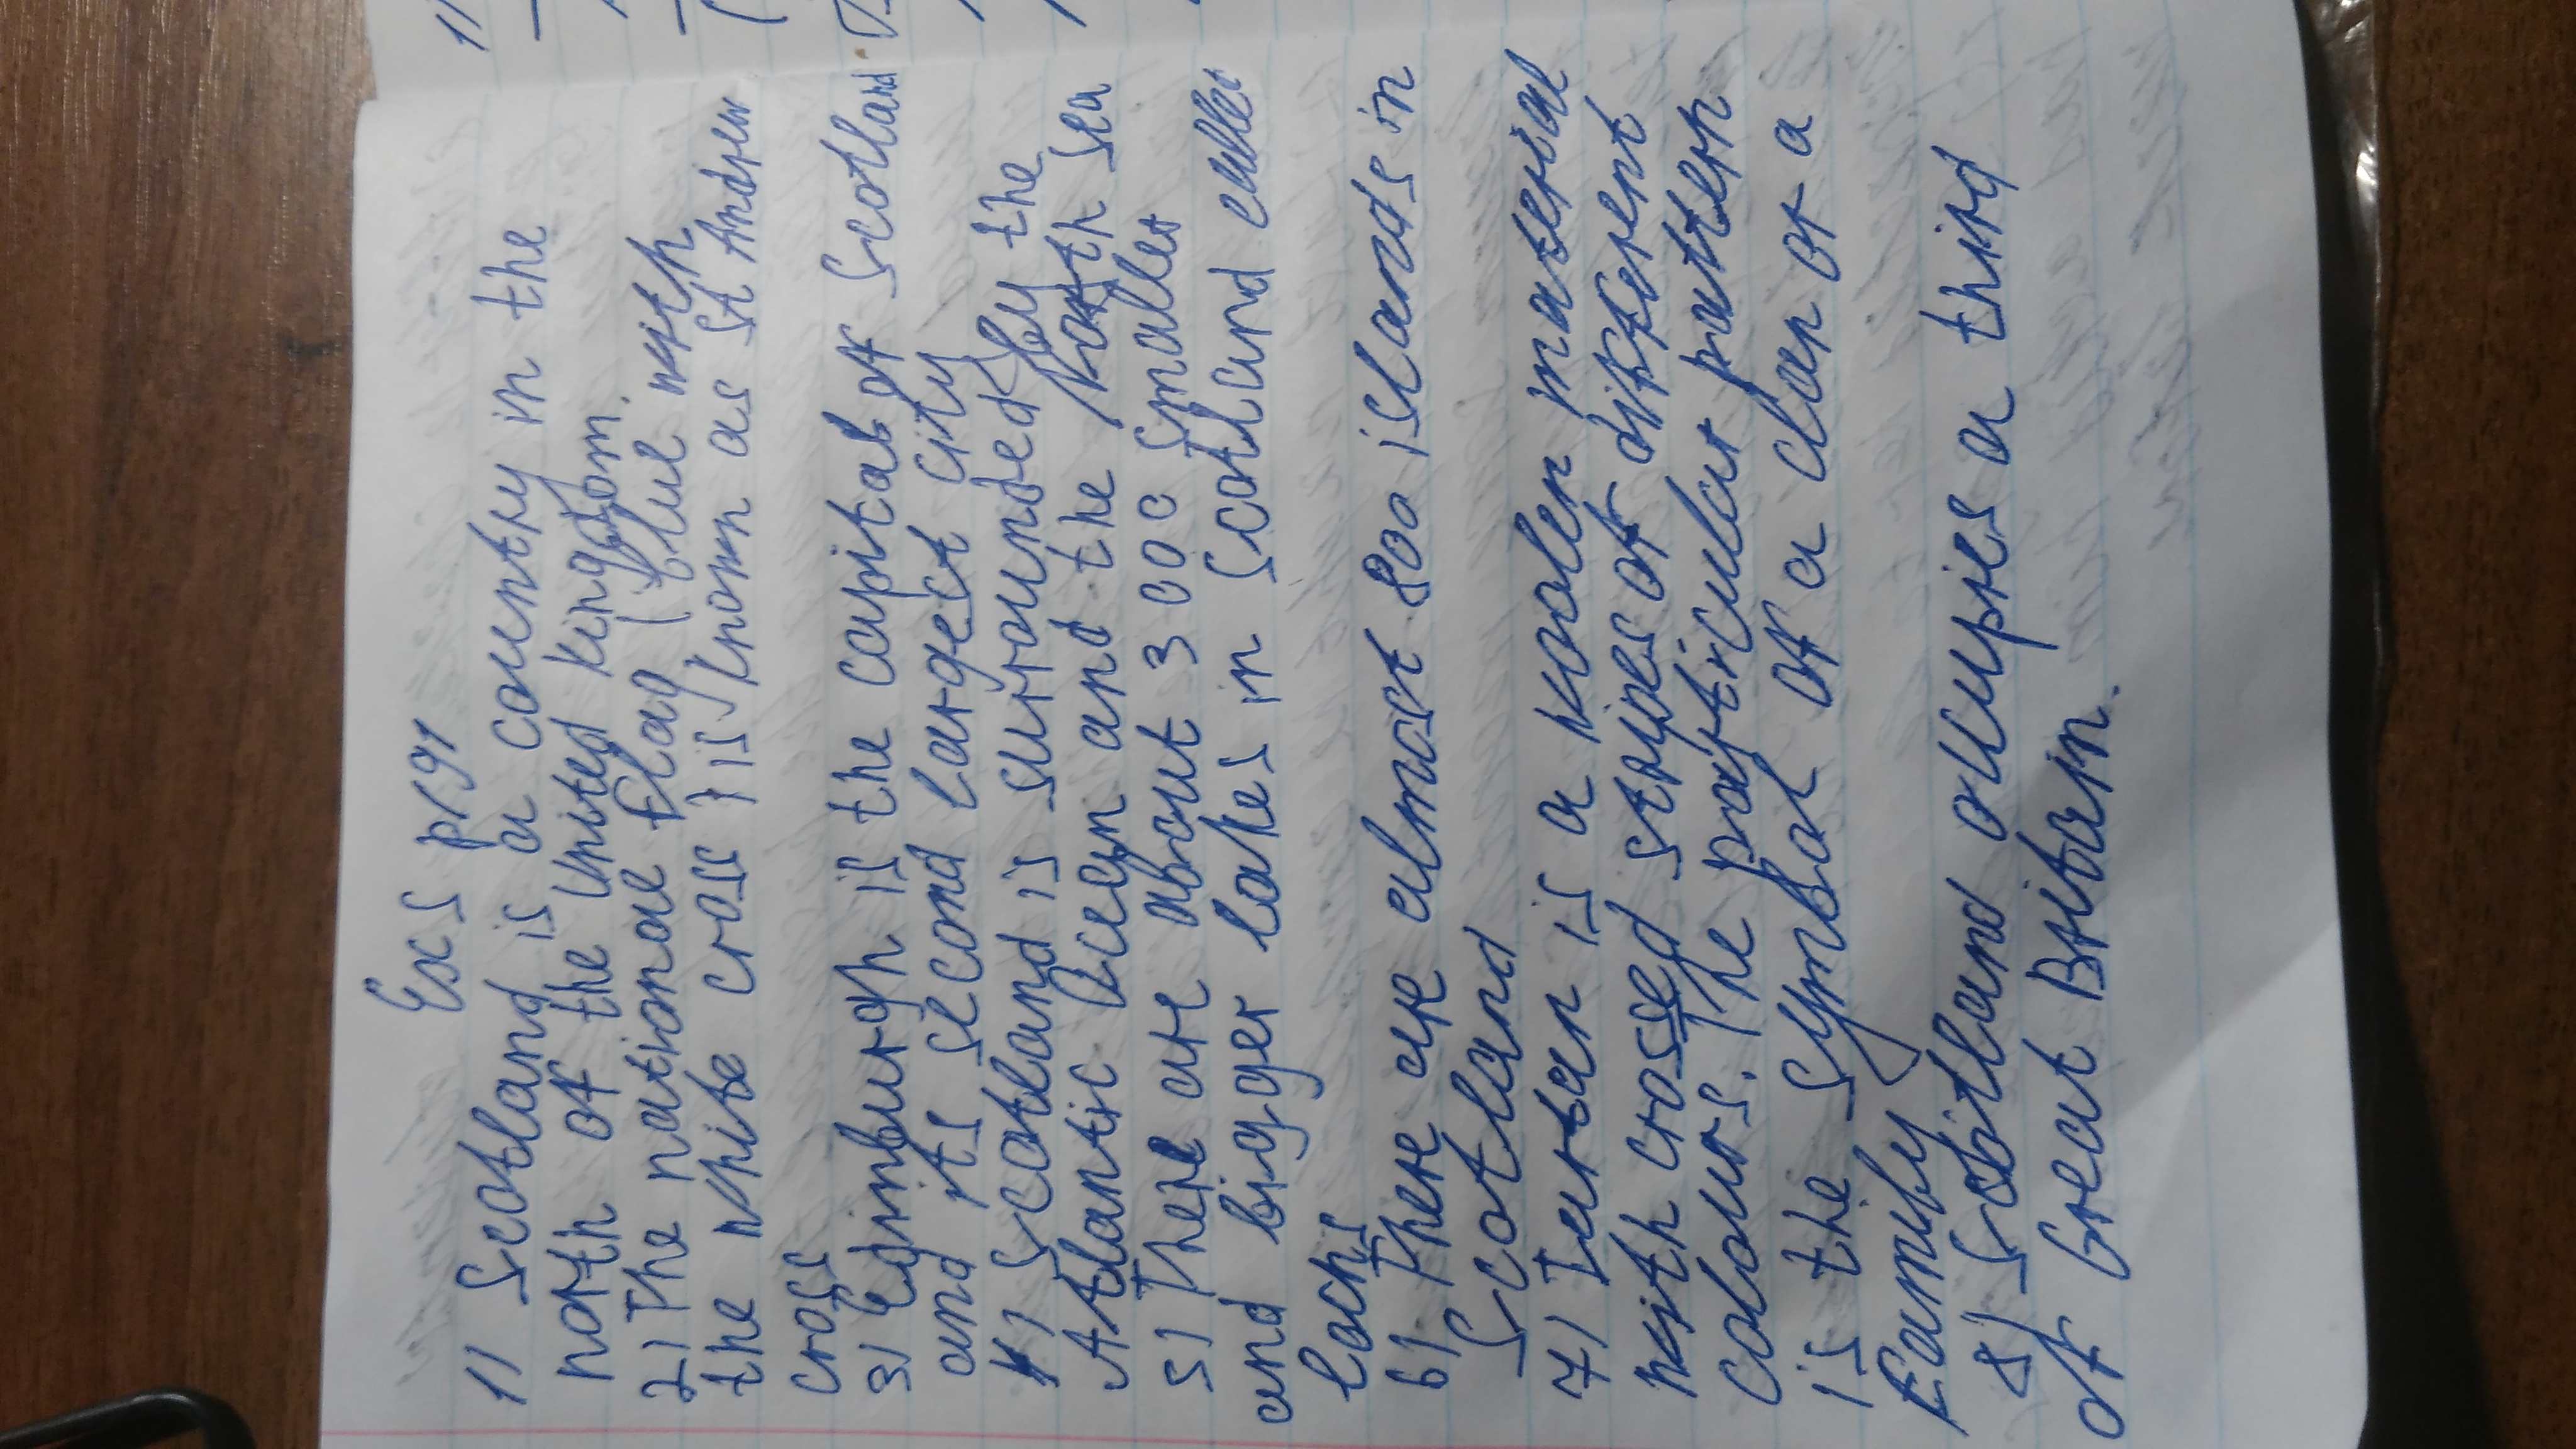 Ex5 p191
1) Scotland is a country in the
north of the United Kingdom.
2) The national flag (blue with
the white cross) is known as St Andrew
cross
3) Edinburgh is the capital of Scotland
and its second largest city
4) Scotland is surrounded by the
Atlantic Oceyn and the North Sea
5) There are about 3000 smaller
and bigger lakes in Scotland called
lochs
6) There are almost 800 islands in
Scotland
7) Tartan is a woolen material
with crossed stripes of different
colours. The particular pattern
is the symbol of a clan or a
family
8) Scotland occupies a third
of Great Britain.